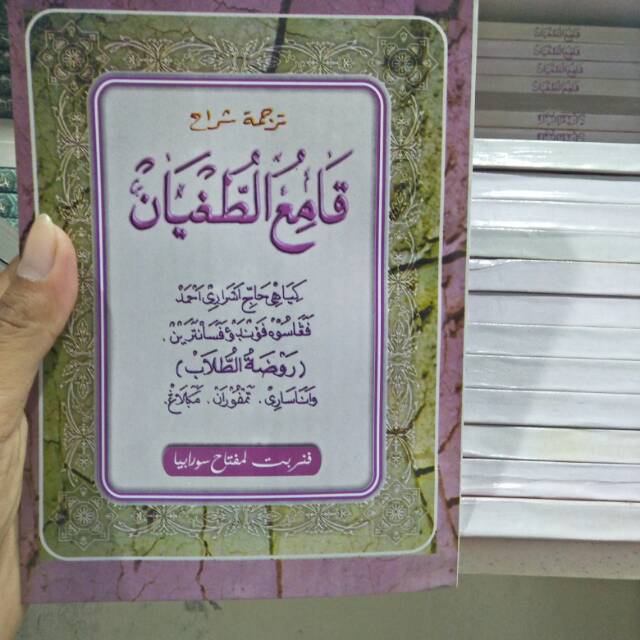 ترجمة شراح
قَامِعُ الطُّغْيَانْ
كياهي حاج اشراري احمد
ڤڠاسوه ڤوندؤ ڤسانترين.
(رَوْضَةُ الطُّلَابْ)
واناساري. تمڤوران. مݢلاڠ.
ڤنربت لمفتاح سورابيا